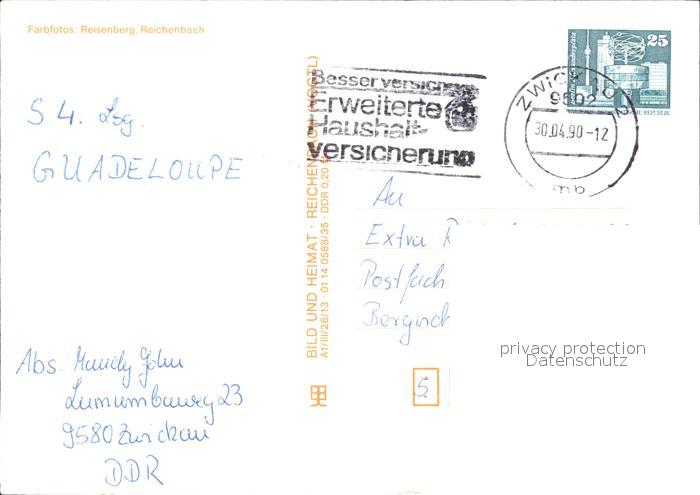 Farbfotos: Reisenberg, Reichenbach
S 4. Lsg.
GUADELOUPE
Besser versich
Erweiterte
Haushalt-
versicherung
ZWICKAU 2
9502
30.04.90-12
mb
25
An
Extra R
Postfach
Bergisch
privacy protection
Datenschutz
5
BILD UND HEIMAT · REICHENBACH (VOGTL)
A1/III/26/13 · 01 14 0588/35 · DDR 0,20
Abs. Mandy John
Lumumbaweg 23
9580 Zwickau
DDR